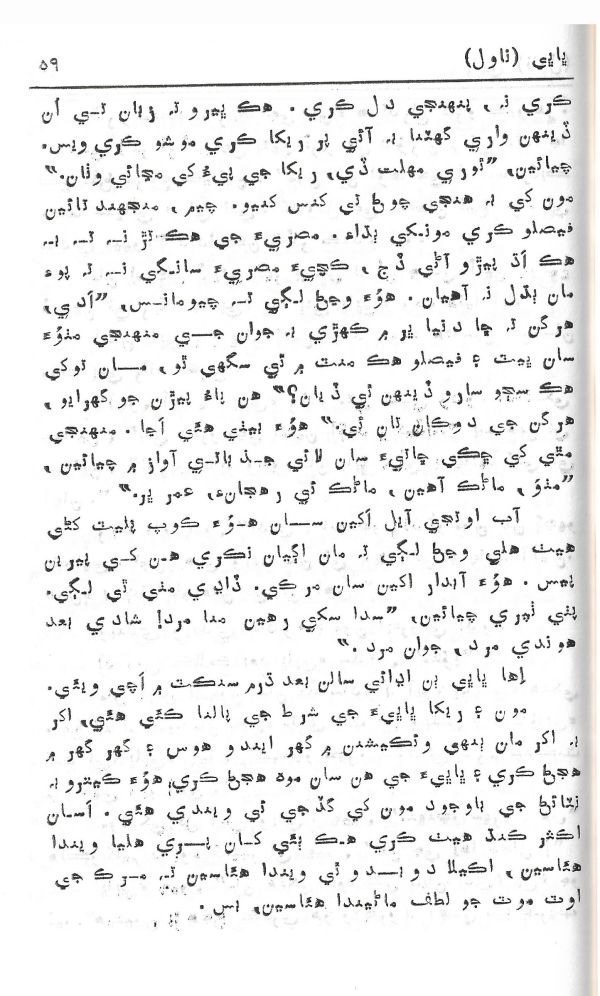 ڀاڀي (ناول) ۵۹
ڪري نہ، پنهنجي دل ڪري. هڪ ڀيرو تہ زبان تي اُن
ڏينهن واري گهٽنا بہ آئي پر ريکا ڪري موشو ڪري ويس.
چيائين، ”ٿوري مهلت ڏي، ريکا جي پيءُ کي مڃائي وٺان.“
مون کي بہ هنجي چوڻ تي کٽس کنيو. چيم، منجهند تائين
فيصلو ڪري مونکي ٻڌاءِ. مصريءَ جي هڪ تڙ نہ تہ بہ
هڪ اڌ ڀيڙو آڻي ڏج، ڪچيءَ مصريءَ سانگي نہ تہ پوءِ
مان ٻڌل نہ آهيان. هوءَ وڃڻ لڳي تہ چيومانس، ”ادي،
هر گن تہ ڇا دنيا ڀر ۾ ڪهڙي بہ جوان جي منهنجي منوءَ
سان ڀيٽ ۽ فيصلو هڪ منٽ ۾ ٿي سگهي ٿو، مان توکي
هڪ سڄو سارو ڏينهن ٿي ڏيان؟“ هن پاءُ ٻيڙن جو گهرايو،
هر گن جي دوڪان تان ئي.“ هوءَ بيٺي هئي اڃا. منهنجي
مٿي کي ڇڪي ڇاتيءَ سان لائي جذباتي آواز ۾ چيائين،
”منوَ، ماڻڪ آهين، ماڻڪ ئي رهجانءِ، عمر ڀر.“
آب اوتجي آيل اکين سان هوءَ ڪوپ پليٽ کڻي
هيٺ هلي وڃڻ لڳي تہ مان اڳيان نڪري هن کي پيرين
پيس. هوءَ آبدار اکين سان مرڪي. ڏاڍي مٺي ٿي لڳي.
پٺي ٺپري چيائين، ”سدا سکي رهين منا مرد! شادي بعد
هوندي مرد، جوان مرد.“
اِها ڀاڀي ٻن اڍائي سالن بعد ڌرم سنڪٽ ۾ اچي ويئي.
مون ۽ ريکا ڀاڀيءَ جي شرط جي پالنا ڪئي هئي، اڪر
بہ اڪر مان ٻنهي وئڪيشنن ۾ گهر ايندو هوس ۽ گهر گهر ۾
هجڻ ڪري ۽ ڀاڀيءَ جي هن سان موه هجڻ ڪري، هوءَ ڪيترو بہ
نٽائڻ جي باوجود مون کي گڏجي ئي ويندي هئي. اسان
اڪثر ڪنڌ هيٺ ڪري هڪ ٻئي کان پري هليا ويندا
هئاسين، اڪيلا دوبدو ٿي ويندا هئاسين تہ مرڪ جي
اوت موت جو لطف ماڻيندا هئاسين، بس.